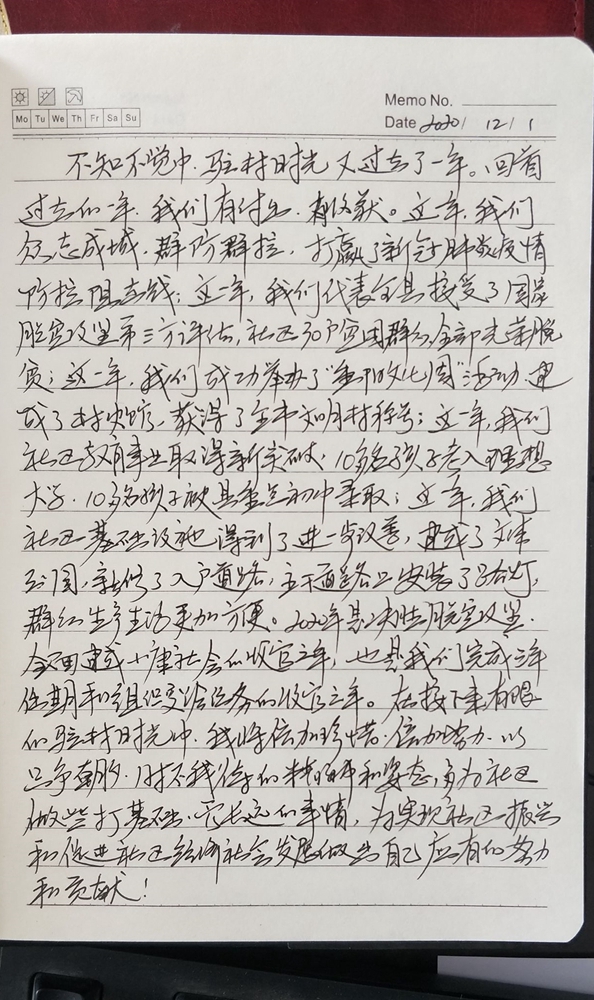 Memo No.
Mo Tu We Th Fr Sa Su
Date 2020 / 12 / 1
不知不觉中,驻村时光又过去了一年。回首
过去的一年,我们有付出,有收获。这一年,我们
众志成城,群防群控,打赢了新冠肺炎疫情
防控阻击战;这一年,我们代表全县接受了国家
脱贫攻坚第三方评估,社区30户贫困群众全部光荣脱
贫;这一年,我们成功举办了“文化周”活动,建
成了村史馆,获得了全市文明村称号;这一年,我们
社区教育事业取得新突破,10多名孩子考入理想
大学,10多名孩子被县重点初中录取;这一年,我们
社区基础设施得到了进一步改善,建成了文体
公园,新修了入户道路,主干道路口安装了路灯,
群众生产生活更加方便。2020年是决胜脱贫攻坚、
全面建成小康社会的收官之年,也是我们完成三年
任期和组织交给任务的收官之年。在接下来有限
的驻村时光中,我将倍加珍惜、倍加努力,以
只争朝夕、时不我待的精神和姿态,多为社区
做些打基础、管长远的事情,为实现社区振兴
和促进社区经济社会发展做出自己应有的努力
和贡献!